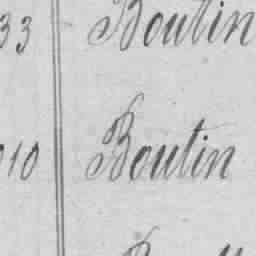 33 Boutin
10 Boutin